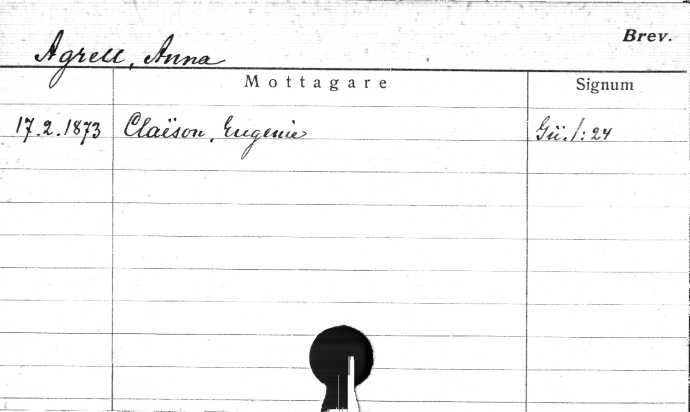 Brev.
Agrell, Anna
Mottagare Signum
17.2.1873 Claëson, Eugenie Gü./: 24